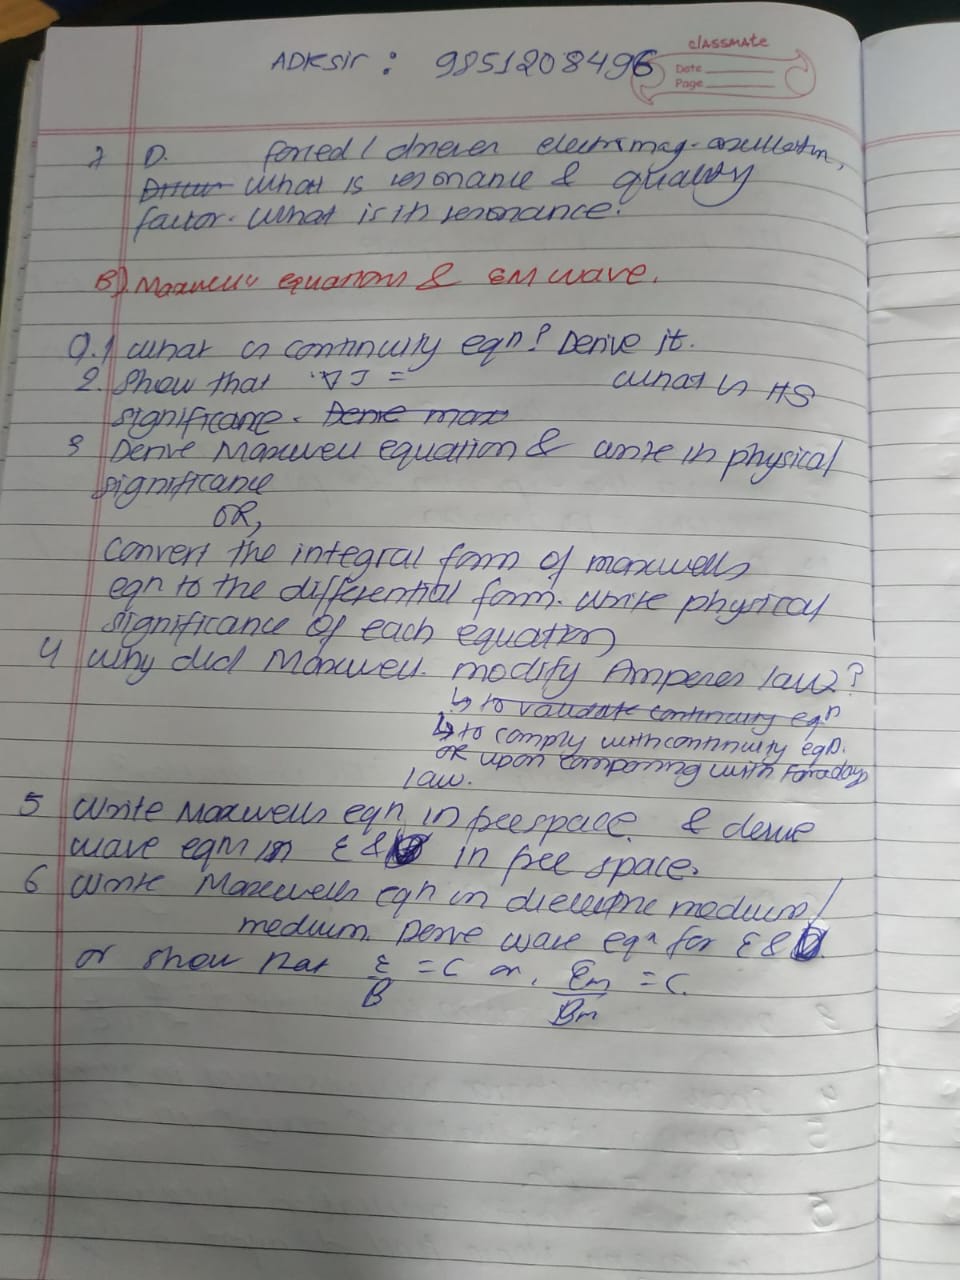 classmate
ADKsir : 9851208496
Date
Page
7 D. forced / driven electromag-oscillation,
What is resonance & quality
factor. What is in resonance.
B). Maxwell's equations & EM wave.
Q.1 What is continuity eqn? Derive it.
2. Show that ∇J = What is its
significance. Derive max
3 Derive Maxwell equation & write in physical
significance
OR,
Convert the integral form of maxwells
eqn to the differential form. Write physical
significance of each equation
4 Why did Maxwell. modify Amperes law?
↳ to validate continuity eqn
↳ to comply with continuity eqn.
OR upon comparing with Faradays
law.
5 Write Maxwells eqn in free space. & derive
wave eqn in E & in free space.
6 Write Maxwells eqn in dielectric medium/
medium. Derive wave eqn for E &
or show that E/B = C or, Em/Bm = C.